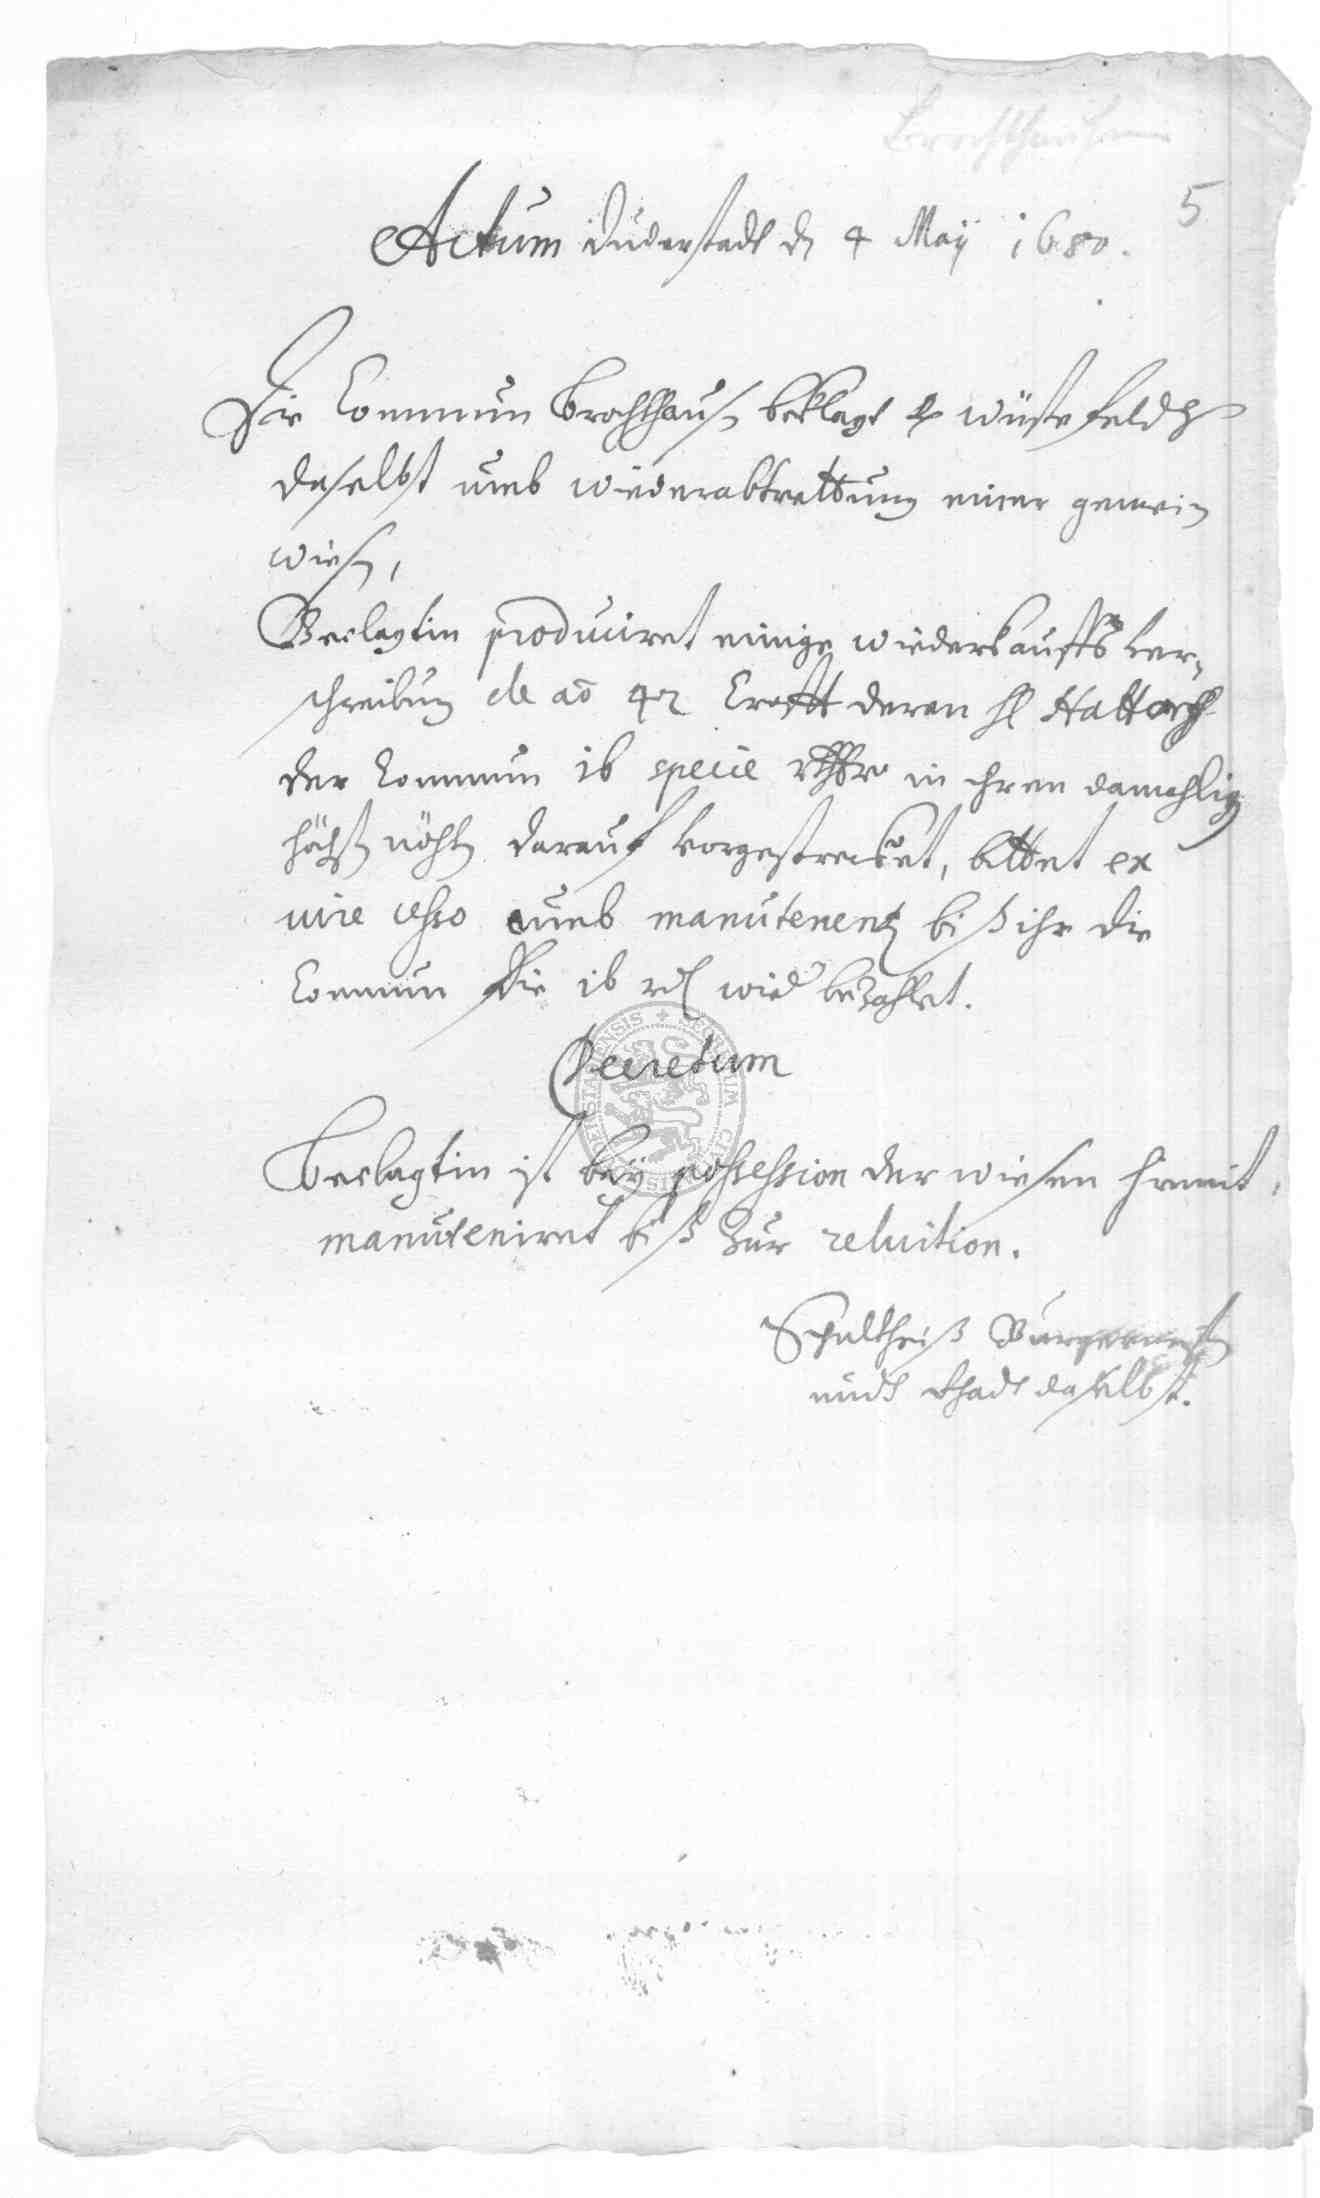 Brochthausen
5
Actum Duderstadt d 4 Maÿ 1680.
Die Commun Brochthausen beklagt wüstefeldts
daselbst umb wiederabtrettung einer gemein
wiesen,
Beclagtin produciret einige wiederkauffs ver-
schreibung de ao 42 Crafft deren H Hattorff
der Commun 16 specie rthlr in ihren damahligen
höchsten nöthen darauf vorgestrecket, bittet ex
iure cesso umb manutenentz biß ihr die
Commun die 16 rth wied bezahlet.
Decretum
Beclagtin ist beÿ possession der wiesen hiemit
manuteniret biß zur reluition.
Schultheiß Burgermeister
undt Rhadt daselbst.